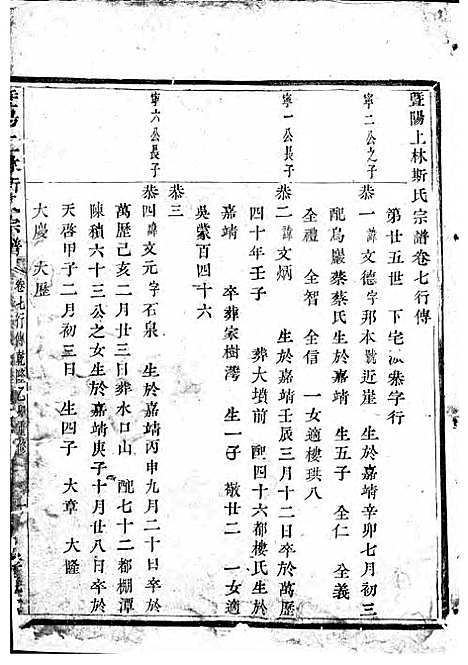 暨陽上林斯氏宗譜卷七行傳
第廿五世 下宅派恭字行
寧二公之子
恭一諱文德字邦本號近崖 生於嘉靖辛卯七月初三
配烏巖蔡蔡氏生於嘉靖 生五子 全仁 全義
全禮 全智 全信 一女適樓珙八
寧一公長子
恭二諱文炳 生於嘉靖壬辰三月十二日卒於萬歷
四十年壬子 葬大墳前 配四十六都樓氏生於
嘉靖 卒葬家樹灣 生一子 敬廿二 一女適
吳蒙百四十六
恭三
寧六公長子
恭四諱文元字石泉 生於嘉靖丙申九月二十日卒於
萬歷己亥二月廿三日葬水口山 配七十二都棚潭
陳積六十三公之女生於嘉靖庚子十月廿八日卒於
天啓甲子二月初三日 生四子 大章 大隆
大慶 大歷
宗譜 卷七行傳